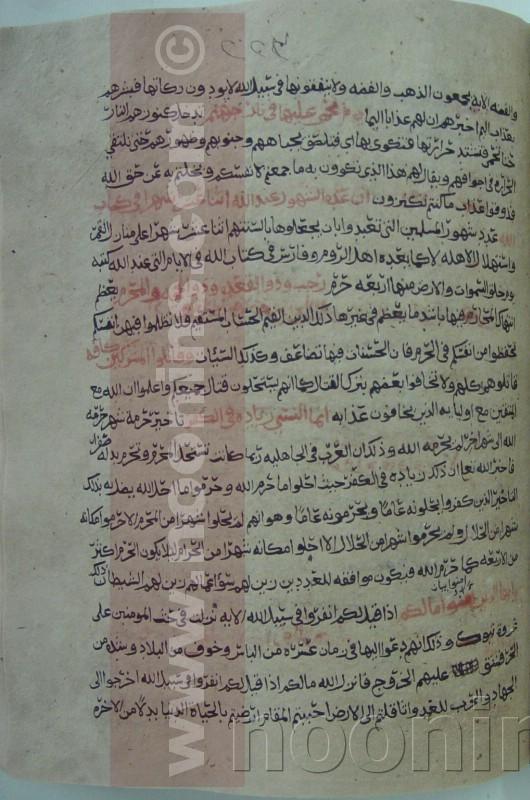 والفضه الايه يجمعون الذهب والفضه ولا ينفقونها في سبيل الله لا يودون زكاتها فبشرهم
بعذاب اليم اخبرهم ان لهم عذابا اليما يوم يحمى عليها في نار جهنم تدخل كنوزهم النار
حتى تحمى فتشتد حرارتها فتكوى بها اي فتلصق بجباههم وجنوبهم وظهورهم حتى يلتقي
الحر في اجوافهم ويقال لهم هذا الذي تكوون به ما جمعتم لانفسكم وبخلتم به عن حق الله
فذوقوا عذاب ما كنتم تكنزون ان عدة الشهور عند الله اثنا عشر شهرا في كتاب
الله عدد شهور المسلمين التي تعبدوا بان يجعلوها لسنتهم اثنا عشر شهرا على منازل القمر
واستهلال الاهله لا كما يعده اهل الروم وفارس في كتاب الله في الايام التي عند الله كتبه
يوم خلق السموات والارض منها اربعه حرم رجب وذو القعده وذو الحجه والمحرم يعظم
انتهاك المحارم فيها باشد ما يعظم في غيرها ذلك الدين القيم الحساب المستقيم ولا تظلموا فيهن انفسكم
تحفظوا من انفسكم في الحرم فان الحسنات فيها تضاعف وكذلك السيئات وقاتلوا المشركين كافه
قاتلوهم كلهم ولا تحابوا بعضهم بترك القتال كما انهم يستحلون قتال جميعكم واعلموا ان الله مع
المتقين مع اوليايه الذين يخافون عذابه انما النسي زياده في الكفر تاخير حرمة شهر حرمه
الله الى شهر اخر لم يحرمه الله وذلك ان العرب في الجاهليه ربما كانت تستحل المحرم وتحرم بدله صفرا
فاخبر الله تعا ان ذلك زياده في الكفر حيث احلوا ما حرم الله وحرموا ما احل الله يضل به بذلك
التاخير الذين كفروا يحلونه عاما ويحرمونه عاما وهو انهم لم يحلوا شهرا من المحرم الا حرموا مكانه
شهرا من الحلال ولم يحرموا شهرا من الحلال الا احلوا مكانه شهرا من الحرام لئلا يكون الحرم اكثر
من الاربعه كما حرم الله فيكون موافقه للعدد زين لهم سوء اعمالهم زين لهم الشيطان ذلك
يا ايها الذين امنوا ما لكم اذا قيل لكم انفروا في سبيل الله الايه نزلت في حث المومنين على
غزوة تبوك وذلك انهم دعوا اليها في زمان عسره من الباس وخوف من البلاد وشده من
الحر فشق عليهم الخروج فانزل الله ما لكم اذا قيل لكم انفروا في سبيل الله اخرجوا الى
الجهاد والحرب للعدو اثاقلتم الى الارض احببتم المقام ارضيتم بالحياة الدنيا بدلا من الاخره
www.noonins.com ©
noonin